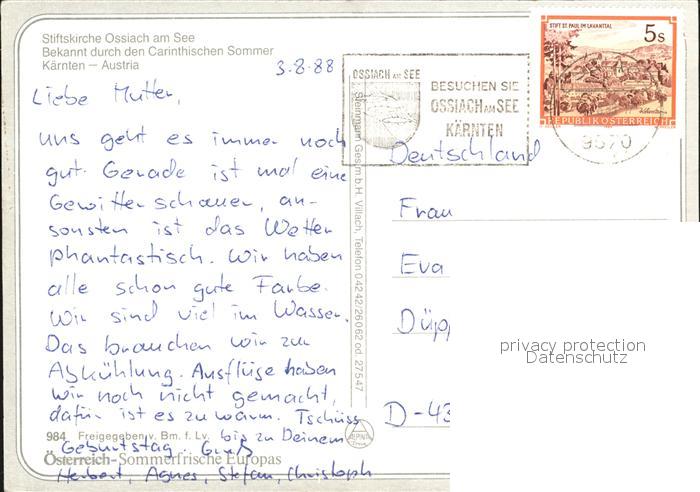 Stiftskirche Ossiach am See
Bekannt durch den Carinthischen Sommer
Kärnten – Austria
3.8.88
Liebe Mutter,
uns geht es immer noch
gut. Gerade ist mal eine
Gewitterschauer, an-
sonsten ist das Wetter
phantastisch. Wir haben
alle schon gute Farbe.
Wir sind viel im Wasser.
Das brauchen wir zur
Abkühlung. Ausflüge haben
wir noch nicht gemacht,
dafür ist es zu warm. Tschüss
bis zu Deinem
Geburtstag. Gruß
Herbert, Agnes, Stefan, Christoph
984 Freigegeben v. Bm. f. Lv.
Österreich-Sommerfrische Europas
Steinmann Ges.m.b.H. Villach, Telefon 04242/26062 od. 27547
OSSIACH AM SEE
BESUCHEN SIE
OSSIACH AM SEE
KÄRNTEN
STIFT ST. PAUL IM LAVANTTAL
5s
REPUBLIK ÖSTERREICH
9570
Deutschland
Frau
Eva
Düpp
D-43
privacy protection
Datenschutz